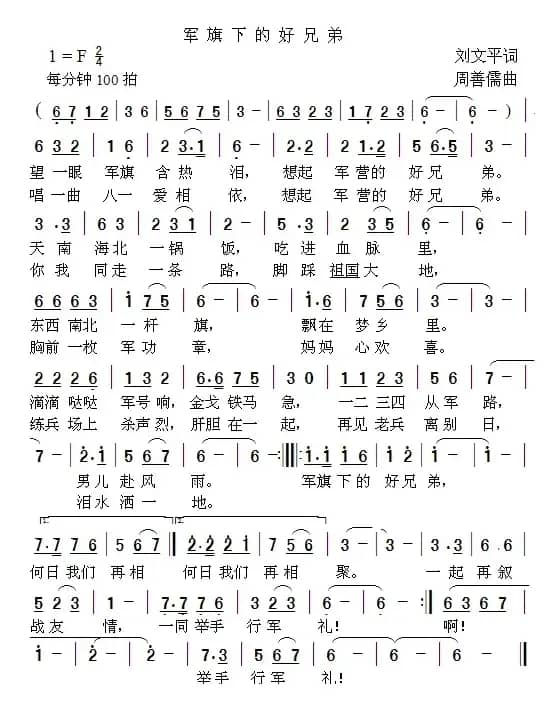 军旗下的好兄弟
1=F 2/4 刘文平词
每分钟100拍 周善儒曲
( 6 7 1 2 | 3 6 | 5 6 7 5 | 3 - | 3 1 2 3 | 1 7 2 3 | 6 - | 6 - )|
6 3 3 | 1 6 | 2 3·1 | 2 - | 2·2 | 2 1·2 | 5 6·5 | 3 - |
望一眼 军旗 含热 泪, 想起 军营的 好兄 弟。
唱一曲 八一 爱相 依, 想起 军营的 好兄 弟。
3·3 | 6 3 | 2 3 1 | 2 - | 5·3 | 2 3 5 | 6 - | 6 - |
天南 海北 一锅 饭, 吃进 血脉 里,
你我 同走 一条 路, 脚踩 祖国大 地,
6 6 6 3 | 1 7 5 | 6 - | 6 - | 1·6 | 7 5 6 | 3 - | 3 - |
东西南北 一杆 旗, 飘在 梦乡 里。
胸前一枚 军功 章, 妈妈 心欢 喜。
2 2 2 6 | 1 3 | 6·6 7 5 | 3 0 | 3 3 2 3 | 5 6 | 7 - |
滴滴哒哒 军号响, 金戈铁马 急, 一二三四 从军 路,
练兵场上 杀声烈, 肝胆在一 起, 再见老兵 离别 日,
7 - | 2·2 | 5 6 7 | 6 - | 6 - :||: 1·1 1 6 | 1·2 | 1 - | 1 - |
男儿 赴风 雨。 军旗下的 好兄弟,
泪水 洒一 地。
7·7 7 6 | 5 6 7 ‖ 2·2 2 1 | 7 5 6 | 3 - | 3 - | 3·3 | 5 6 |
何日我们 再相 何日我们 再相 聚。 一起 再叙
5 2 3 | 1 - | 7·7 7 6 | 3 2 3 | 6 - | 6 - :‖ 6 3 6 7 |
战友 情, 一同举手 行军 礼! 啊!
1 - | 2 - | 2 - | 7·3 | 5 6 7 | 6 - | 6 - | 6 - ‖
举手 行军 礼!